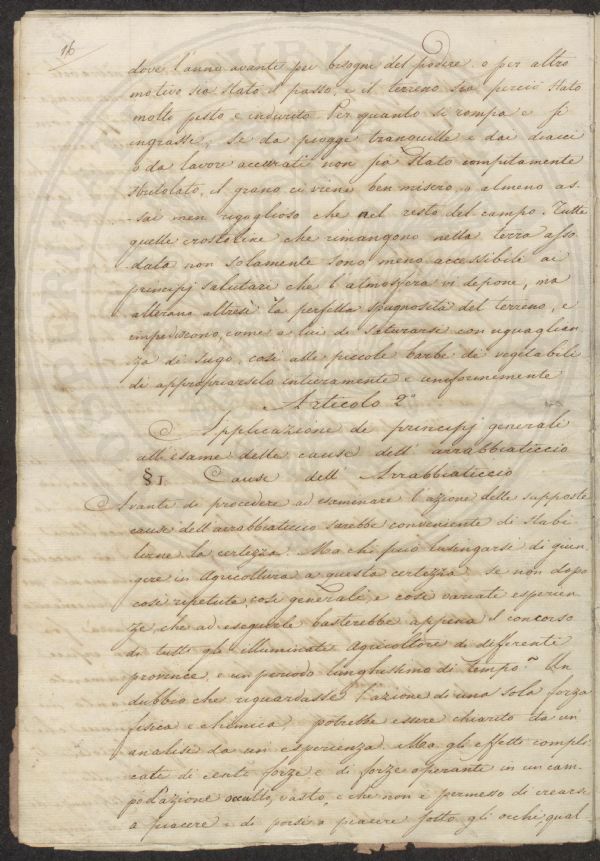 16
dove l'anno avanti pei bisogni del podere o per altro
motivo sia stato il passo, e il terreno sia perciò stato
molto pesto e indurito. Per quanto si rompa e si
ingrassi, se da piogge tranquille e dai diacci
o da lavori accurati non sia stato compitamente
stritolato, il grano ci viene ben misero, o almeno as-
-sai men rigoglioso che nel resto del campo. Tutte
quelle crostoline che rimangono nella terra asso
data non solamente sono meno accessibili ai
principj salutari che l'atmosfera vi depone, ma
alterano altresì la perfetta spugnosità del terreno, e
impediscono, come a lui di saturarsi con uguaglian
za di sugo, così alle piccole barbe di vegetabili
di appropriarselo intieramente e uniformemente
Articolo 2°
Applicazione de principj generali
all'esame delle cause dell'arrabbiaticcio
§ I. Cause dell'Arrabbiaticcio
Avanti di procedere ad esaminare l'azione delle supposte
cause dell'arrabbiaticcio sarebbe conveniente di stabi
lirne la certezza. Ma chi può lusingarsi di giun
gere in Agricoltura a questa certezza se non dopo
così ripetute, così generali, e così variate esperien
ze, che ad eseguirle basterebbe appena il concorso
di tutti gli illuminati Agricoltori di differenti
province, e un periodo lunghissimo di tempo. Un
dubbio che riguardasse l'azione di una sola forza
fisica e chimica, potrebbe essere chiarito da un
analisi da un esperienza. Ma gli effetti compli
cati di cento forze, e di forze operanti in un cam
po d'azione occulto, vasto, e che non è permesso di crearsi
a piacere e di porsi a piacere sotto gli occhi qual